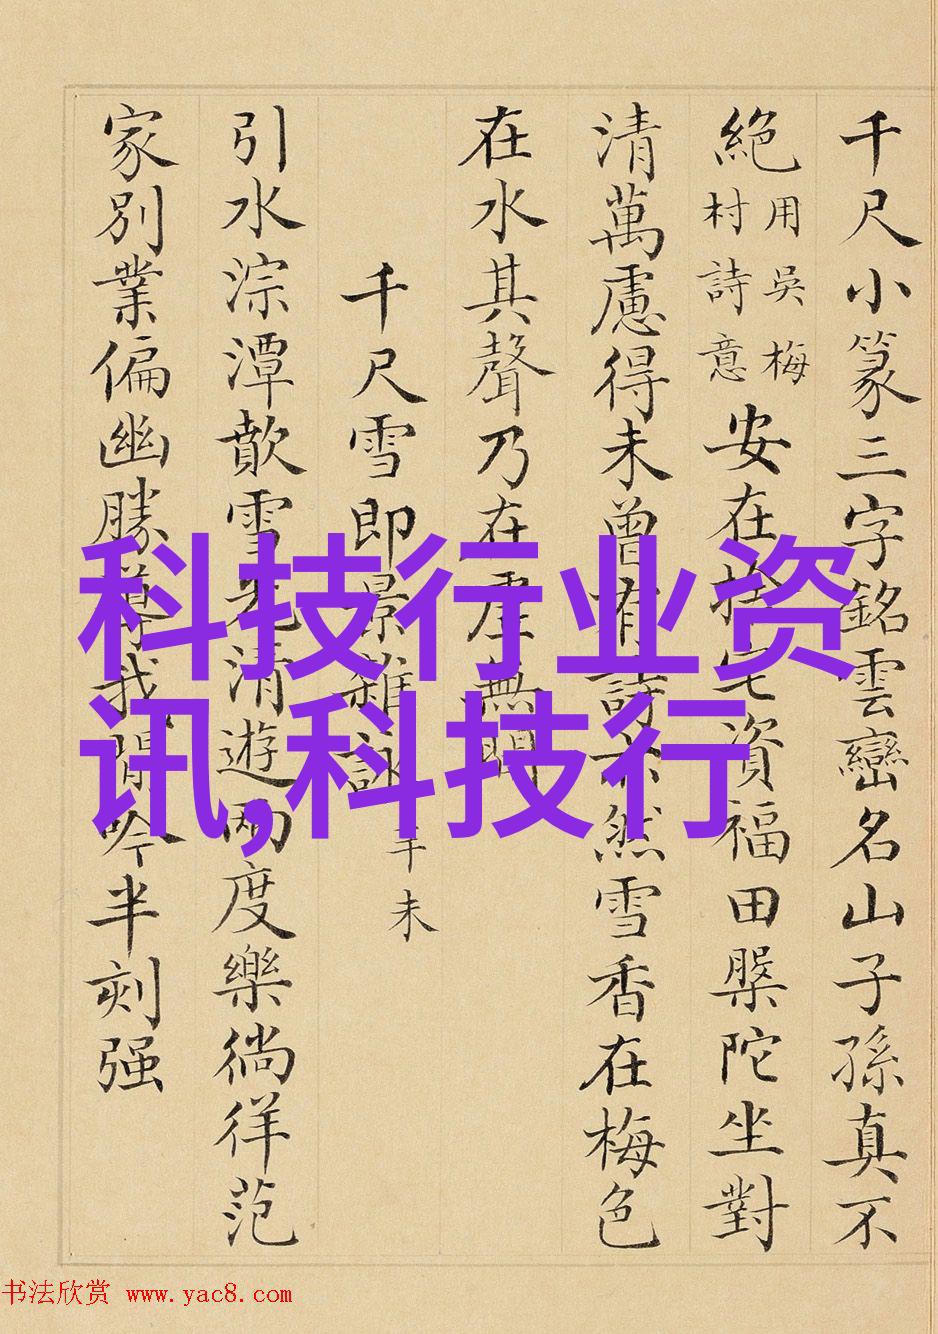 千尺小篆三字銘雲巒名山子孫真不
絶
用吳梅
村詩意
安在捨宅資福田槃陀坐對
清萬慮得未曾有詩亦然雪香在梅色
在水其聲乃在虛無間
千尺雪即景雜詠
辛未
引水淙潭歕雪光清遊兩度樂徜徉范
家別業偏幽勝導我閒吟半刻强
科技行业资
讯,科技行
书法欣赏 www.yac8.com